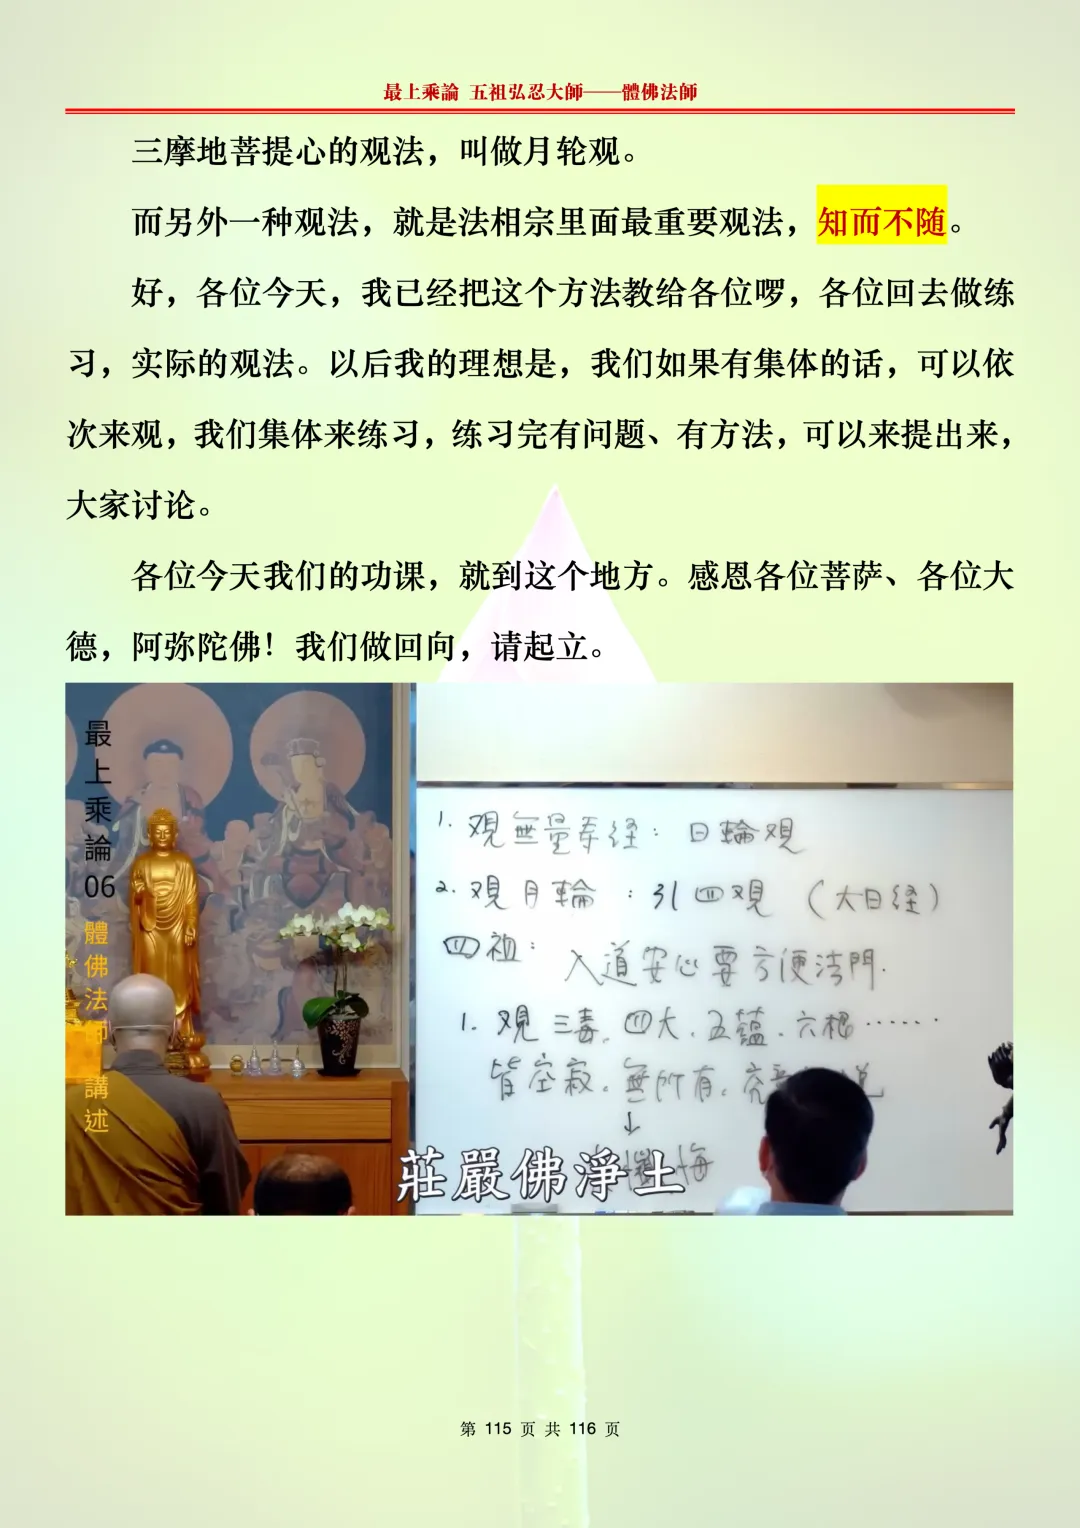 最上乘論 五祖弘忍大師——體佛法師
三摩地菩提心的观法，叫做月轮观。
而另外一种观法，就是法相宗里面最重要观法，知而不随。
好，各位今天，我已经把这个方法教给各位啰，各位回去做练
习，实际的观法。以后我的理想是，我们如果有集体的话，可以依
次来观，我们集体来练习，练习完有问题、有方法，可以来提出来，
大家讨论。
各位今天我们的功课，就到这个地方。感恩各位菩萨、各位大
德，阿弥陀佛！我们做回向，请起立。
最上乘論06 體佛法師 講述
1. 观無量寿经：日輪观
2. 观月輪：引四观（大日经）
四祖：入道安心要方便法門.
1. 观三毒、四大、五蘊、六根……
皆空寂。無所有。
↓
悔
莊嚴佛淨土
第 115 页 共 116 页